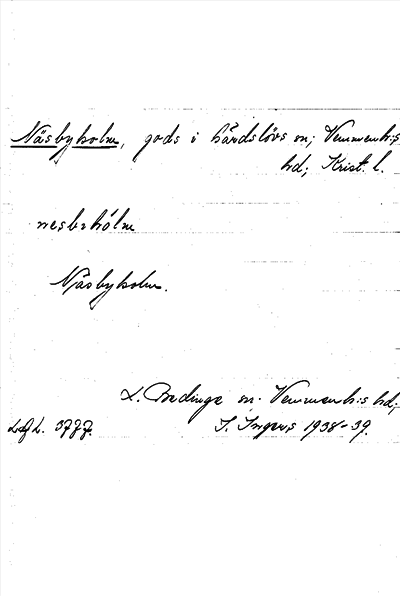 Näsbyholm, gods i Gärdslövs sn; Vemmenh:s
hd; Krist. l.
nesbhólm
Näsbyholm.
L. Bedinge sn. Vemmenh:s hd;
I. Ingers 1938-39.
3777.